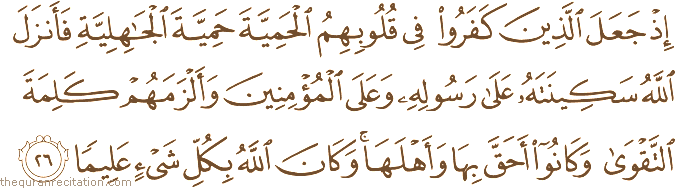 إِذْ جَعَلَ الَّذِينَ كَفَرُوا۟ فِى قُلُوبِهِمُ الْحَمِيَّةَ حَمِيَّةَ الْجَٰهِلِيَّةِ فَأَنزَلَ
اللَّهُ سَكِينَتَهُۥ عَلَىٰ رَسُولِهِۦ وَعَلَى الْمُؤْمِنِينَ وَأَلْزَمَهُمْ كَلِمَةَ
التَّقْوَىٰ وَكَانُوٓا۟ أَحَقَّ بِهَا وَأَهْلَهَا ۚ وَكَانَ اللَّهُ بِكُلِّ شَىْءٍ عَلِيمًا ٢٦
thequranrecitation.com